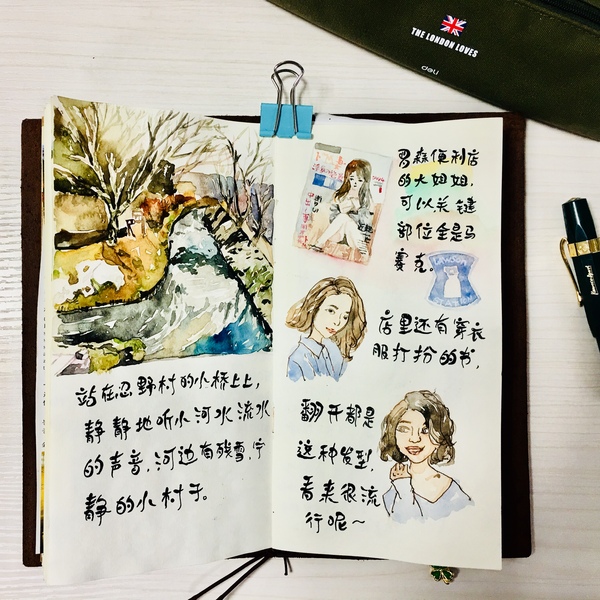 THE LONDON LOVES
deli
站在忍野村的小桥上,
静静地听小河水流水
的声音,河边有残雪,宁
静的小村子。
罗森便利店
的大姐姐,
可以关键
部位全是马
赛克。
LAWSON
店里还有穿衣
服打扮的书,
翻开都是
这种发型,
看来很流
行呢~